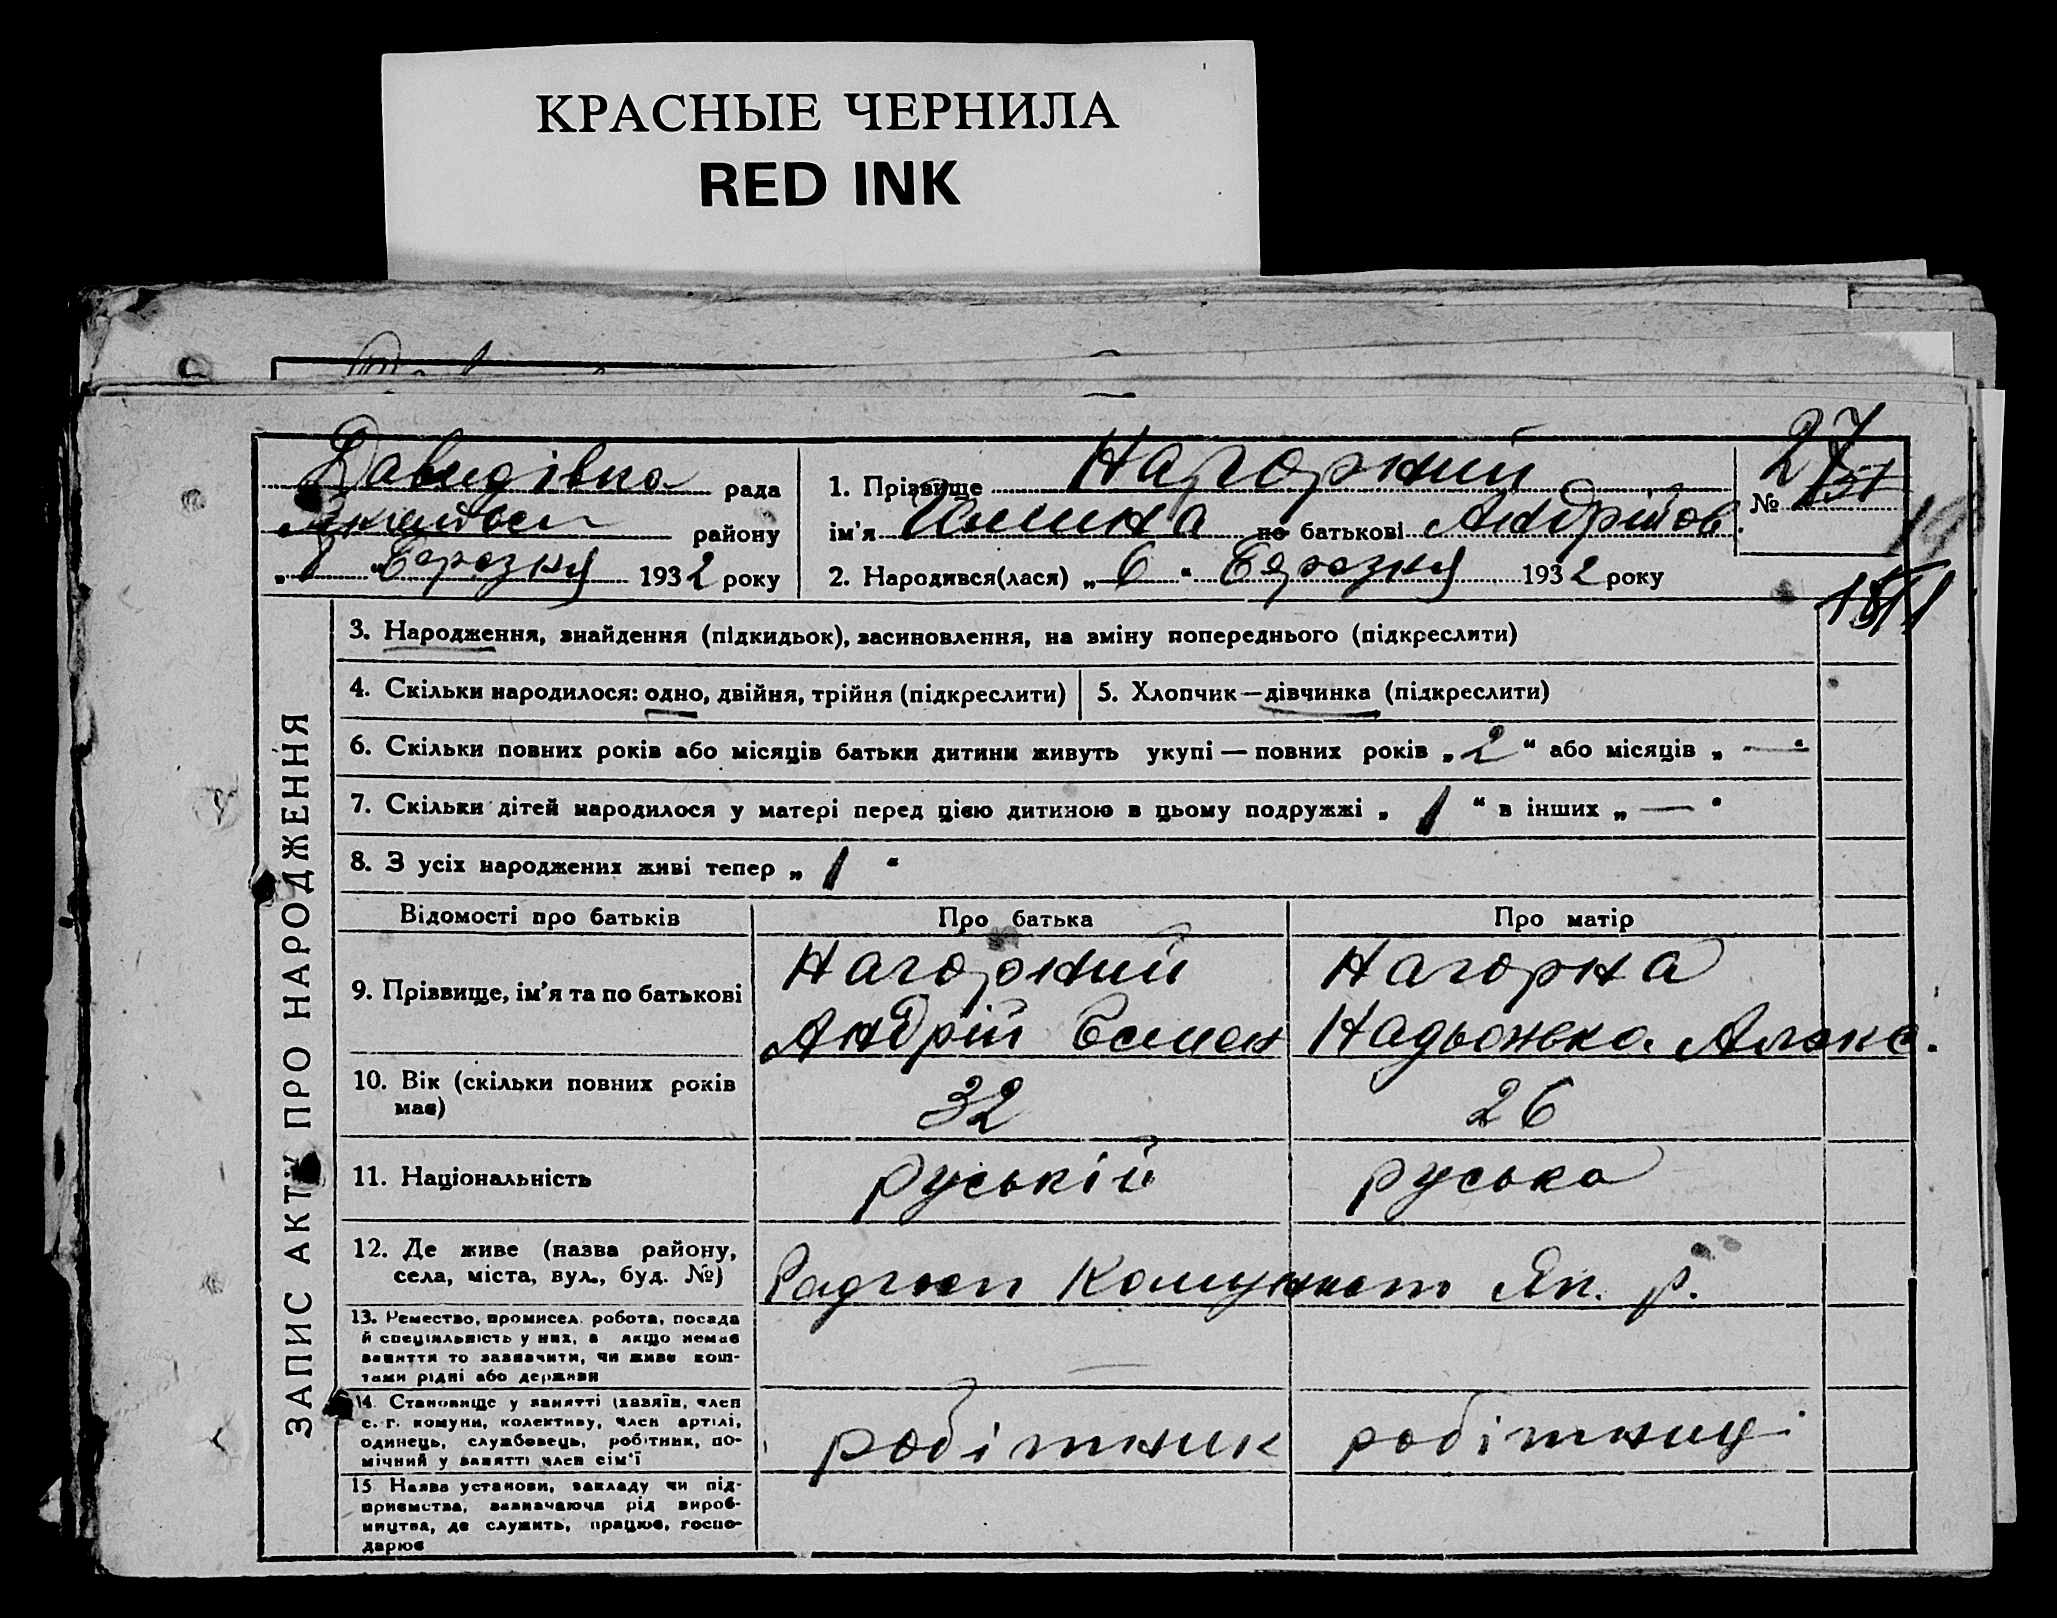 КРАСНЫЕ ЧЕРНИЛА
RED INK
Давидівка рада
району
" Березня 1932 року
1. Прізвище Нагорний
ім'я по батькові Андрійов.
2. Народився(лася) „ 6 " Березня 1932 року
№ 27
3. Народження, знайдення (підкидьок), засиновлення, на зміну попереднього (підкреслити)
4. Скільки народилося: одно, двійня, трійня (підкреслити)
5. Хлопчик — дівчинка (підкреслити)
6. Скільки повних років або місяців батьки дитини живуть укупі — повних років „ 2 " або місяців „ — "
7. Скільки дітей народилося у матері перед цією дитиною в цьому подружжі „ 1 " в інших „ — "
8. З усіх народжених живі тепер „ 1 "
ЗАПИС АКТУ ПРО НАРОДЖЕННЯ
Відомості про батьків Про батька Про матір
9. Прізвище, ім'я та по батькові
Нагорний
Андрій Семен
Нагорна
Надьожка Алекс.
10. Вік (скільки повних років має)
32
26
11. Національність
руській
руська
12. Де живе (назва району,
села, міста, вул., буд. №)
Радгосп Комунист Як. р.
13. Ремество, промисел, робота, посада
й спеціяльність у них, а якщо немає
заняття то зазначити, чи живе кош-
тами рідні або держави
—
14. Становище у занятті (хазяїн, член
с.-г. комуни, колективу, член артілі,
одинець, службовець, робітник, по-
мічний у занятті член сім'ї
робітник
робітниці
15. Назва установи, закладу чи під-
приємства, зазначаючи рід вироб-
ництва, де служить, працює, госпо-
дарює